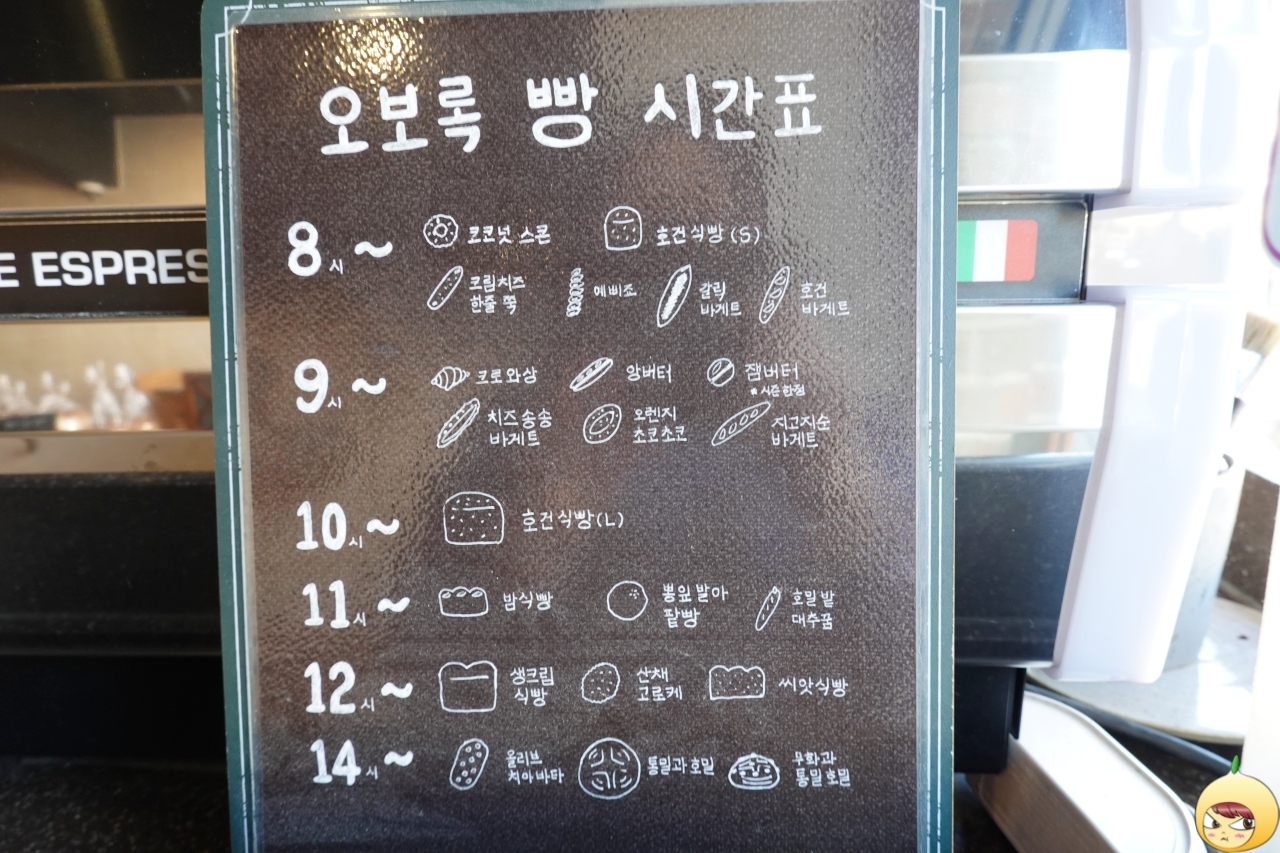 오보록 빵 시간표
E ESPRES
8시~ 코코넛 스콘 호건식빵(S)
크림치즈 한줄 쭉 에삐죠 갈릭 바게트 호건 바게트
9시~ 크로와상 앙버터 잼버터
*시즌한정
치즈송송 바게트 오렌지 초코초코 지고지순 바게트
10시~ 호건식빵(L)
11시~ 밤식빵 뽕잎발아 팥빵 호밀발 대추꿈
12시~ 생크림 식빵 산채 고로케 씨앗식빵
14시~ 올리브 치아바타 통밀과 호밀 무화과 통밀호밀